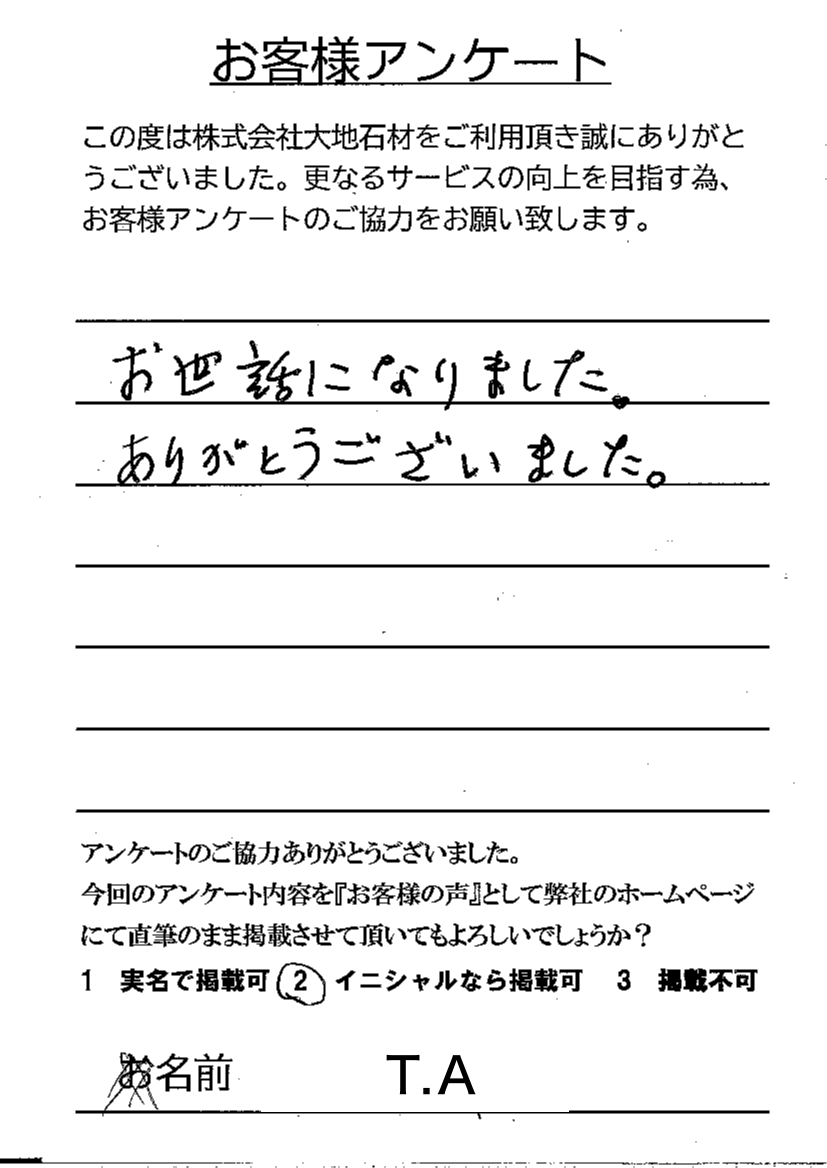 お客様アンケート
この度は株式会社大地石材をご利用頂き誠にありがと
うございました。更なるサービスの向上を目指す為、
お客様アンケートのご協力をお願い致します。
お世話になりました。
ありがとうございました。
アンケートのご協力ありがとうございました。
今回のアンケート内容を『お客様の声』として弊社のホームページ
にて直筆のまま掲載させて頂いてもよろしいでしょうか？
1 実名で掲載可 2 イニシャルなら掲載可 3 掲載不可
お名前 T.A